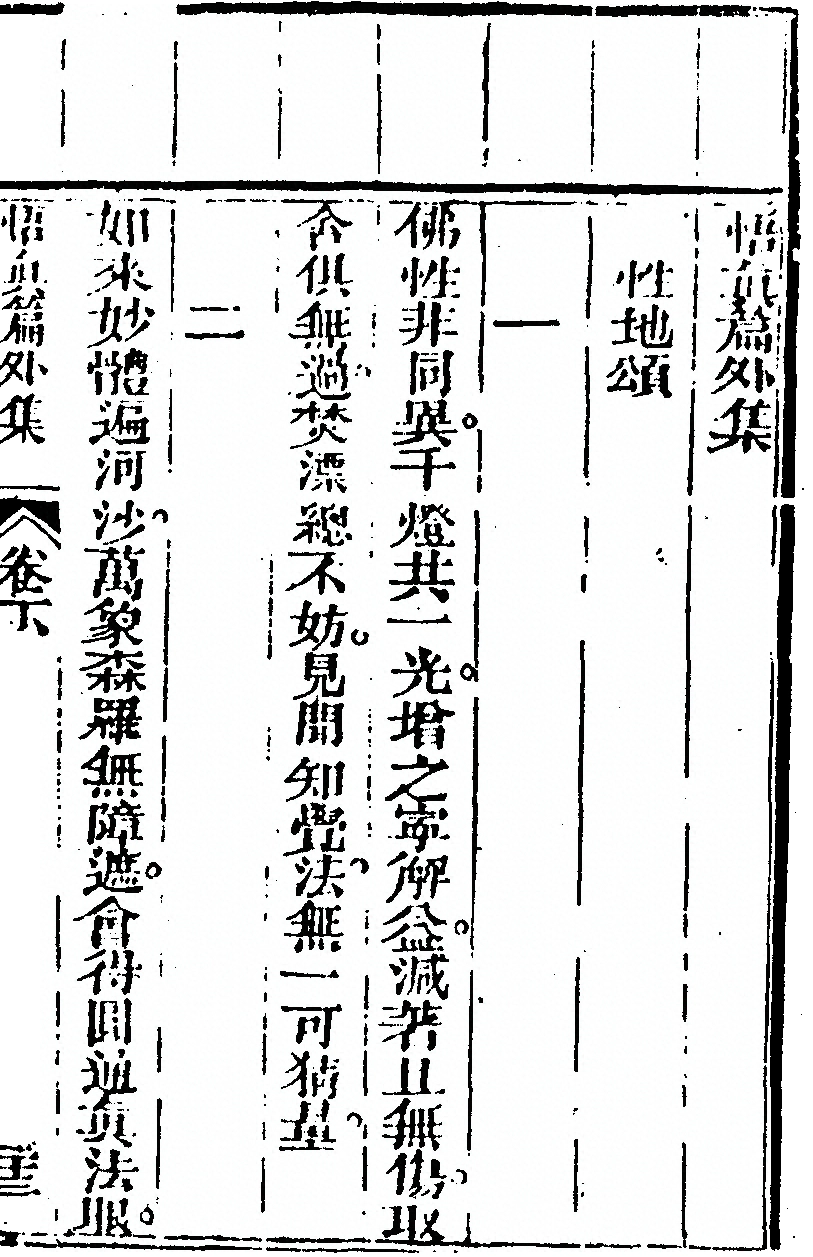 悟真篇外集
性地頌
一
佛性非同異千燈共一光增之寧解益減著且無傷取
舍俱無過焚漂總不妨見聞知覺法無一可猜量
二
如來妙體遍河沙萬象森羅無障遮會得圓通真法眼
悟真篇外集 卷下